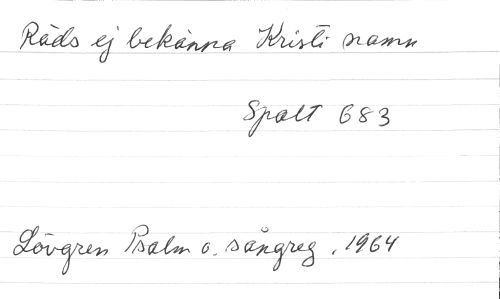 Räds ej bekänna Kristi namn
Spalt 683
Lövgren Psalm o. sångreg. 1964